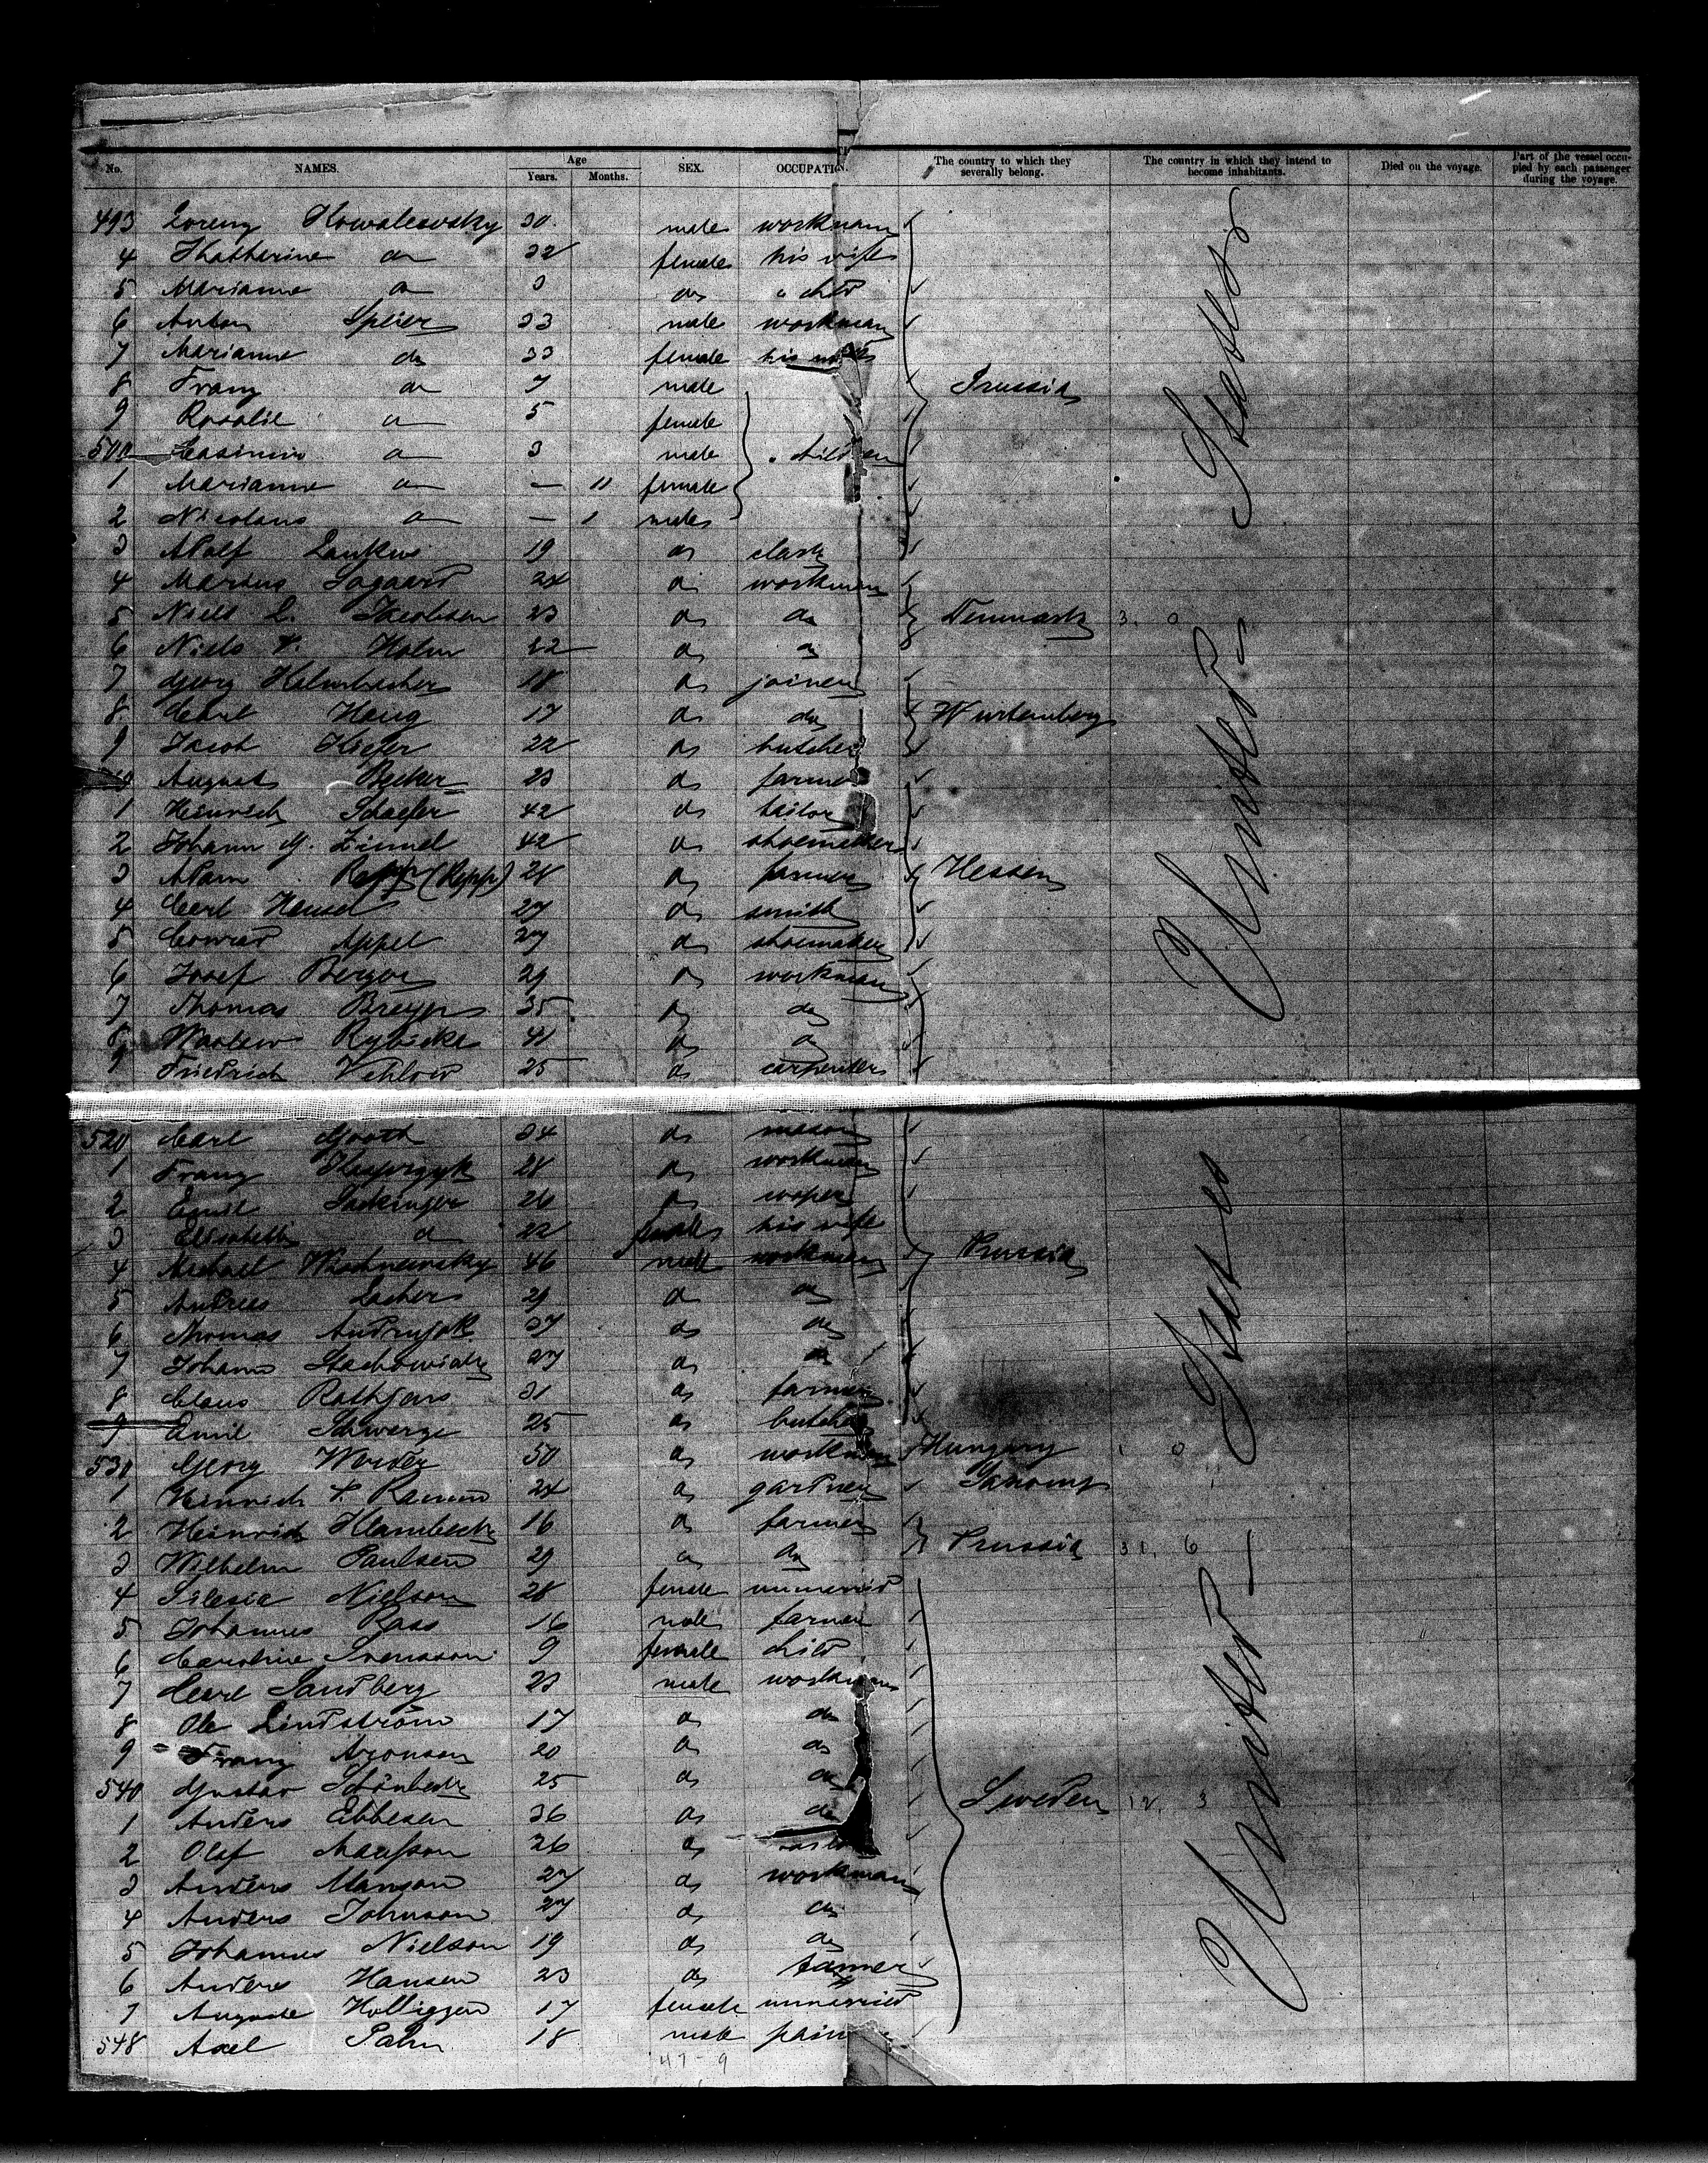 No. NAMES. Age Years. Months. SEX. OCCUPATION. The country to which they severally belong. The country in which they intend to become inhabitants. Died on the voyage. Part of the vessel occupied by each passenger during the voyage.
493 Lorenz Kowalewsky 30 male workman
4 Khatherine do 32 female his wife
5 Marianne do 3 do child
6 Anton Speier 33 male workman
7 Marianne do 33 female his wife
8 Franz do 7 male Prussia
9 Rosalie do 5 female
500 Casimir do 3 male children
1 Marianne do — 11 female
2 Nicolaus do — 1 male
3 Adolf 19 do clerk
4 Marius Sogaard 24 do workman
5 Niels L. Jacobsen 23 do do Denmark 3. 0
6 Niels Holm 22 do do
7 Georg 18 do joiner
8 Carl Haug 17 do do Wurtemberg
9 Jacob Kiefer 22 do butcher
August Becker 23 do farmer
1 Heinrich Schaefer 42 do tailor
2 Johann G. Zimmel 42 do shoemaker
3 Adam (Repp) 28 do farmer Hessen
4 Carl Hensel 27 do smith
5 Conrad Appel 27 do shoemaker
6 Josef Berger 29 do workman
7 Thomas 35 do do
8 Rybicka 41 do do
9 Friedrich Vehlow 25 do carpenter
United States
520 Carl 34 do mason
1 Franz 28 do workman
2 Emil Sackinger 26 do
3 Elisabeth do 22 female his wife
4 Michael Wischnewsky 46 male workman Prussia
5 Andreas 29 do do
6 Thomas 27 do do
7 Johann 27 do do
8 Claus Rathjens 31 do farmer
9 Emil 25 do butcher
530 Georg 50 do workman Hungary 1 0
1 Heinrich 24 do gardner
2 Heinrich Klambeck 16 do farmer
3 Wilhelm Paulsen 29 do do Prussia 31. 6
4 Nielson 28 female unmarried
5 Johannes Rass 16 male farmer
6 Caroline Svensson 9 female child
7 Carl Sandberg 23 male workman
8 Ole Lindström 17 do do
9 Franz Aronson 20 do do
540 Gustav Schönbeck 25 do do Sweden 12. 3
1 Anders Ebbesen 36 do do
2 Olof 26 do
3 Anders Manson 27 do workman
4 Anders Johnson 27 do do
5 Johannes Nielson 19 do do
6 Anders Hansen 23 do
7 Auguste 17 female unmarried
548 Axel Palm 18 male
United States
47-9